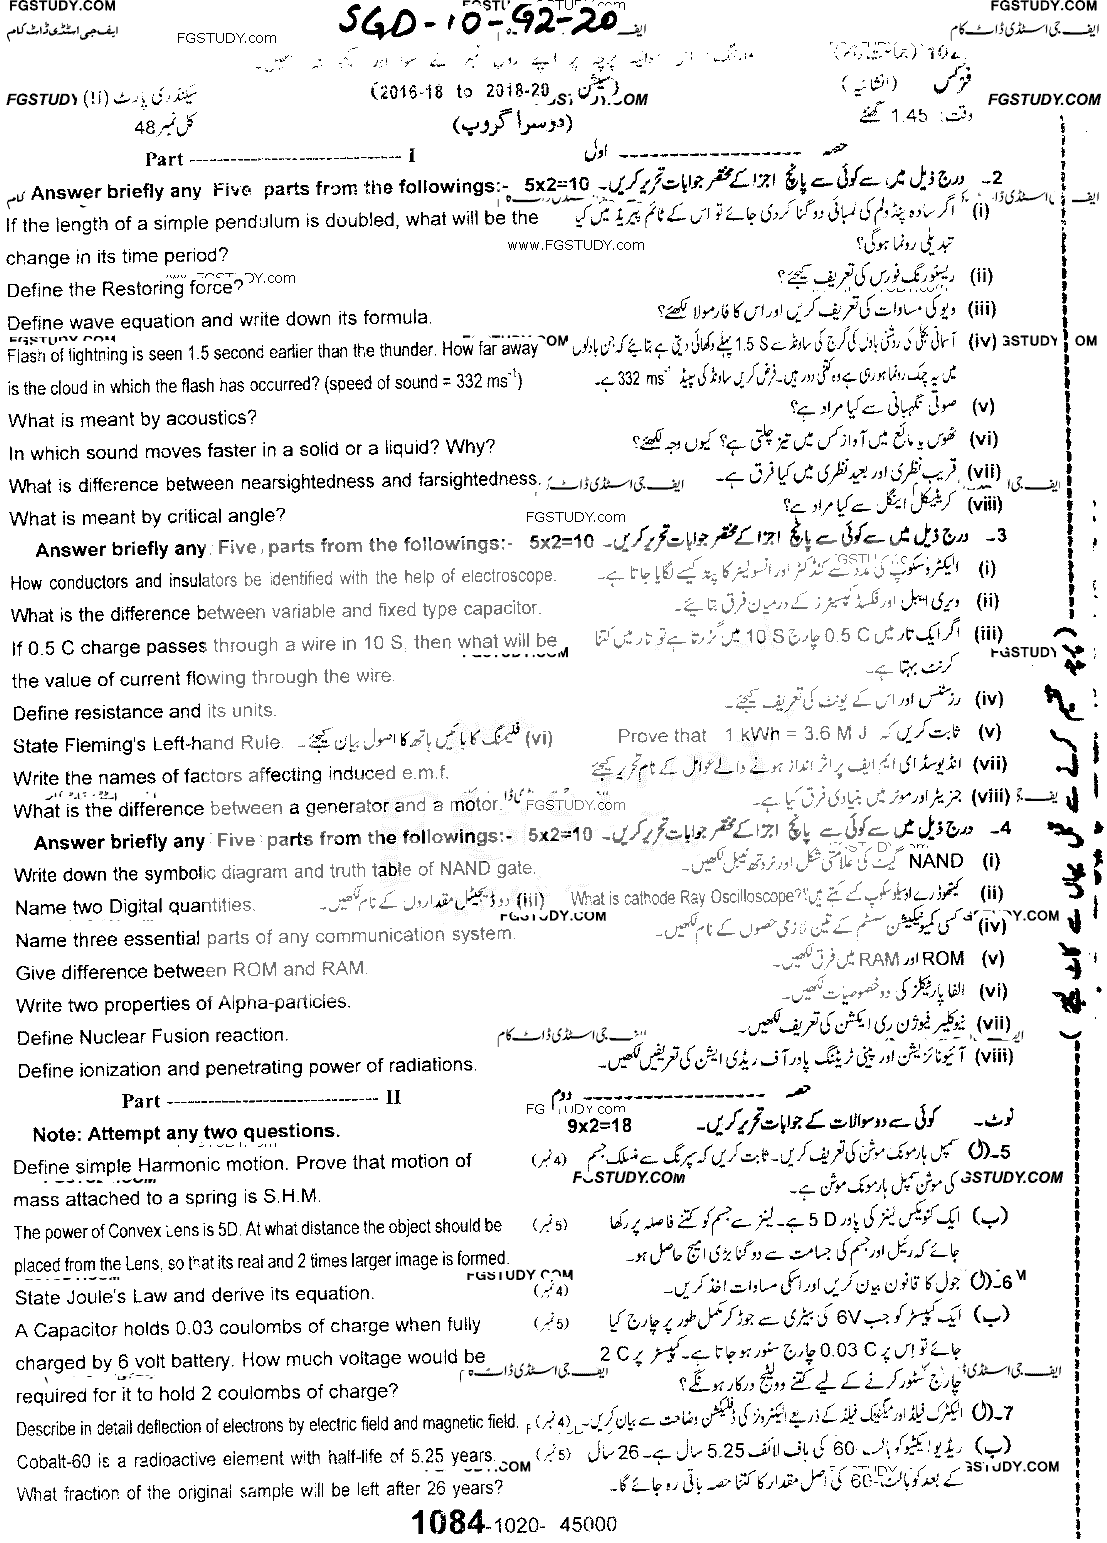 FGSTUDY.COM SGD-10-G2-20 FGSTUDY.COM
ایف جی اسٹڈی ڈاٹ کام FGSTUDY.com ایف جی اسٹڈی ڈاٹ کام
FGSTUDY سیکنڈری پارٹ (ii) (2016-18 to 2018-20 سیشن) (انشائیہ) فزکس FGSTUDY.COM
کل نمبر 48 (دوسرا گروپ) وقت: 1.45 گھنٹے
Part ------------------------------- I حصہ -------------------- اول
Answer briefly any Five parts from the followings:- 5x2=10 2- درج ذیل میں سے کوئی سے پانچ اجزا کے مختصر جوابات تحریر کریں۔
If the length of a simple pendulum is doubled, what will be the (i) اگر سادہ پنڈولم کی لمبائی دوگنا کردی جائے تو اس کے ٹائم پیریڈ میں کیا
change in its time period? www.FGSTUDY.com تبدیلی رونما ہوگی؟
Define the Restoring force? (ii) ریسٹورنگ فورس کی تعریف کیجئے؟
Define wave equation and write down its formula. (iii) ویو کی مساوات کی تعریف کریں اور اس کا فارمولا لکھئے؟
Flash of lightning is seen 1.5 second earlier than the thunder. How far away (iv) آسمانی بجلی کی روشنی بادل کی گرج کی ساؤنڈ سے 1.5 S پہلے دکھائی دیتی ہے بتائیے کہ جن بادلوں
is the cloud in which the flash has occurred? (speed of sound = 332 ms⁻¹) میں یہ چمک رونما ہوری ہے وہ کتنی دور ہیں۔ فرض کریں ساؤنڈ کی سپیڈ 332 ms⁻¹ ہے۔
What is meant by acoustics? (v) صوتی نگہبانی سے کیا مراد ہے؟
In which sound moves faster in a solid or a liquid? Why? (vi) ٹھوس یا مائع میں آواز کس میں تیز چلتی ہے؟ کیوں وجہ لکھئے؟
What is difference between nearsightedness and farsightedness. (vii) قریب نظری اور بعید نظری میں کیا فرق ہے۔
What is meant by critical angle? FGSTUDY.com (viii) کریٹیکل اینگل سے کیا مراد ہے؟
Answer briefly any Five parts from the followings:- 5x2=10 3- درج ذیل میں سے کوئی سے پانچ اجزا کے مختصر جوابات تحریر کریں۔
How conductors and insulators be identified with the help of electroscope. (i) الیکٹروسکوپ کی مدد سے کنڈکٹر اور انسولیٹر کا پتہ کیسے لگایا جاتا ہے۔
What is the difference between variable and fixed type capacitor. (ii) ویری ایبل اور فکسڈ کپیسٹرز کے درمیان فرق بتائیے۔
If 0.5 C charge passes through a wire in 10 S, then what will be (iii) اگر ایک تار میں 0.5 C چارج 10 S میں گزرتا ہے تو تار میں کتنا
the value of current flowing through the wire. کرنٹ بہتا ہے۔
Define resistance and its units. (iv) رزسٹنس اور اس کے یونٹ کی تعریف کیجئے۔
State Fleming's Left-hand Rule. (vi) فلیمنگ کا بائیں ہاتھ کا اصول بیان کیجئے۔ Prove that 1 kWh = 3.6 M J (v) ثابت کریں کہ
Write the names of factors affecting induced e.m.f. (vii) انڈیوسڈ ای ایم ایف پر اثر انداز ہونے والے عوامل کے نام تحریر کیجئے
What is the difference between a generator and a motor. FGSTUDY.com (viii) جنریٹر اور موٹر میں بنیادی فرق کیا ہے۔
Answer briefly any Five parts from the followings:- 5x2=10 4- درج ذیل میں سے کوئی سے پانچ اجزا کے مختصر جوابات تحریر کریں۔
Write down the symbolic diagram and truth table of NAND gate. (i) NAND گیٹ کی علامتی شکل اور ٹروتھ ٹیبل لکھیں۔
Name two Digital quantities. (iii) دو ڈیجیٹل مقداروں کے نام لکھیں۔ What is cathode Ray Oscilloscope? (ii) کیتھوڈ رے اوسیلوسکوپ کسے کہتے ہیں؟
Name three essential parts of any communication system. (iv) کسی کمیونیکیشن سسٹم کے تین لازمی حصوں کے نام لکھیں۔
Give difference between ROM and RAM. (v) ROM اور RAM میں فرق لکھیں۔
Write two properties of Alpha-particles. (vi) الفا پارٹیکلز کی دو خصوصیات لکھیں۔
Define Nuclear Fusion reaction. ایف جی اسٹڈی ڈاٹ کام (vii) نیوکلیئر فیوژن ری ایکشن کی تعریف لکھیں۔
Define ionization and penetrating power of radiations. (viii) آئیونائزیشن اور پینی ٹریٹنگ پاور آف ریڈی ایشن کی تعریفیں لکھیں۔
Part ------------------------------- II حصہ -------------------- دوم
Note: Attempt any two questions. 9x2=18 نوٹ۔ کوئی سے دو سوالات کے جوابات تحریر کریں۔
Define simple Harmonic motion. Prove that motion of (4 نمبر) 5-(ا) سمپل ہارمونک موشن کی تعریف کریں۔ ثابت کریں کہ سپرنگ سے منسلک جسم
mass attached to a spring is S.H.M. FGSTUDY.COM کی موشن سمپل ہارمونک موشن ہے۔ GSTUDY.COM
The power of Convex Lens is 5D. At what distance the object should be (5 نمبر) (ب) ایک کنویکس لینز کی پاور 5 D ہے۔ لینز سے جسم کو کتنے فاصلہ پر رکھا
placed from the Lens, so that its real and 2 times larger image is formed. جائے کہ رئیل اور جسم کی جسامت سے دوگنا بڑی امیج حاصل ہو۔
State Joule's Law and derive its equation. (4 نمبر) 6-(ا) جول کا قانون بیان کریں اور اسکی مساوات اخذ کریں۔
A Capacitor holds 0.03 coulombs of charge when fully (5 نمبر) (ب) ایک کپیسٹر کو جب 6V کی بیٹری سے جوڑ کر مکمل طور پر چارج کیا
charged by 6 volt battery. How much voltage would be جائے تو اس پر 0.03 C چارج سٹور ہو جاتا ہے۔ کپیسٹر پر 2 C
required for it to hold 2 coulombs of charge? چارج سٹور کرنے کے لیے کتنے وولٹیج درکار ہونگے؟
Describe in detail deflection of electrons by electric field and magnetic field. (4 نمبر) 7-(ا) الیکٹرک فیلڈ اور میگنیٹک فیلڈ کے ذریعے الیکٹرونز کی ڈفلیکشن وضاحت سے بیان کریں۔
Cobalt-60 is a radioactive element with half-life of 5.25 years. (5 نمبر) (ب) ریڈیو ایکٹیو کوبالٹ 60 کی ہاف لائف 5.25 سال ہے۔ 26 سال
What fraction of the original sample will be left after 26 years? کے بعد کوبالٹ-60 کی اصل مقدار کا کتنا حصہ باقی رہ جائے گا۔
1084-1020- 45000